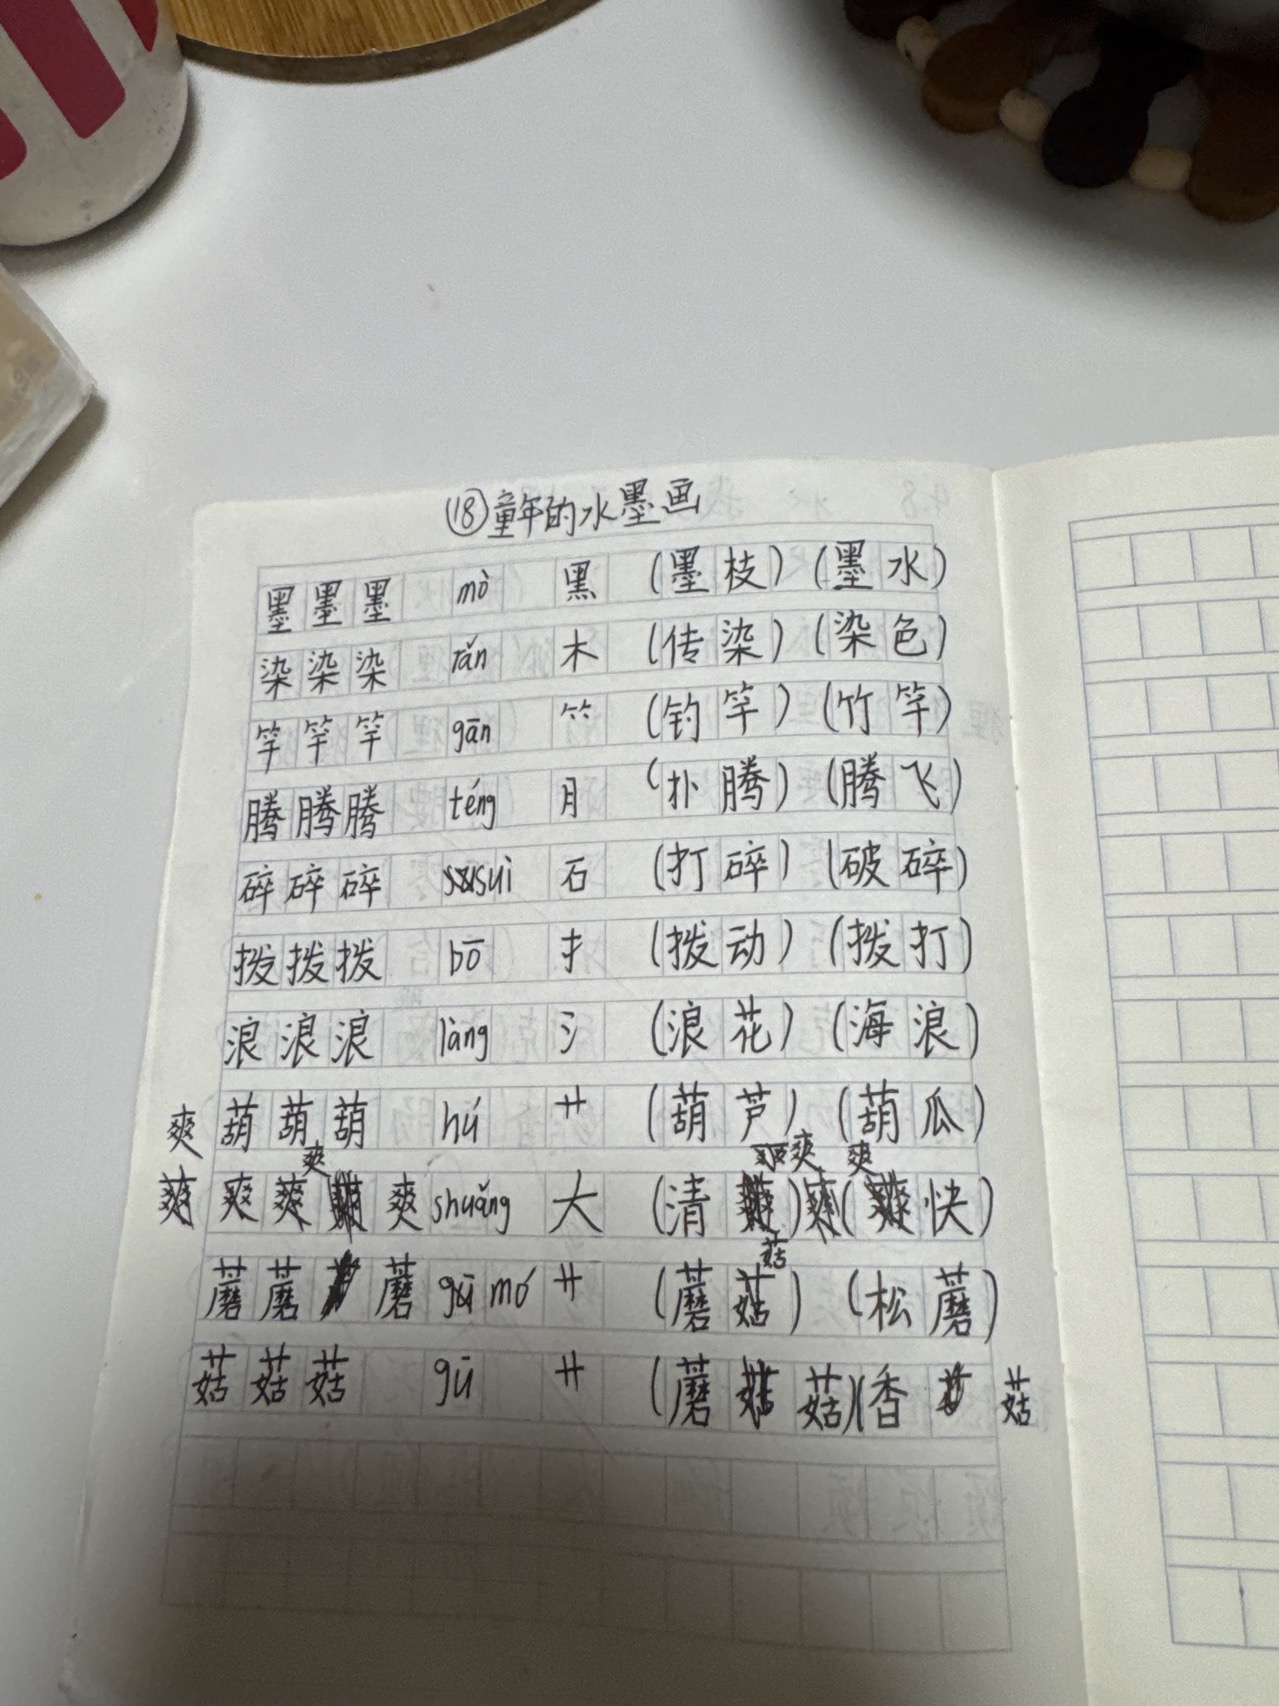 ⑱童年的水墨画
墨墨墨 mò 黑 (墨枝) (墨水)
染染染 rǎn 木 (传染) (染色)
竿竿竿 gān ⺮ (钓竿) (竹竿)
腾腾腾 téng 月 (扑腾) (腾飞)
碎碎碎 suì 石 (打碎) (破碎)
拨拨拨 bō 扌 (拨动) (拨打)
浪浪浪 làng 氵 (浪花) (海浪)
葫葫葫 hú 艹 (葫芦) (葫瓜)
爽
爽 爽 爽 爽 爽 shuǎng 大 (清爽) (爽快)
蘑蘑蘑 mó 艹 (蘑菇) (松蘑)
菇菇菇 gū 艹 (蘑菇)(香菇